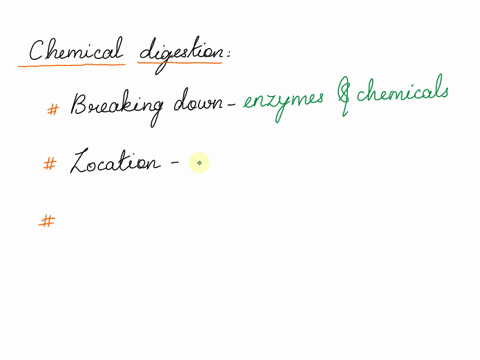 Chemical digestion:
# Breaking down - enzymes & chemicals
# Location -
#